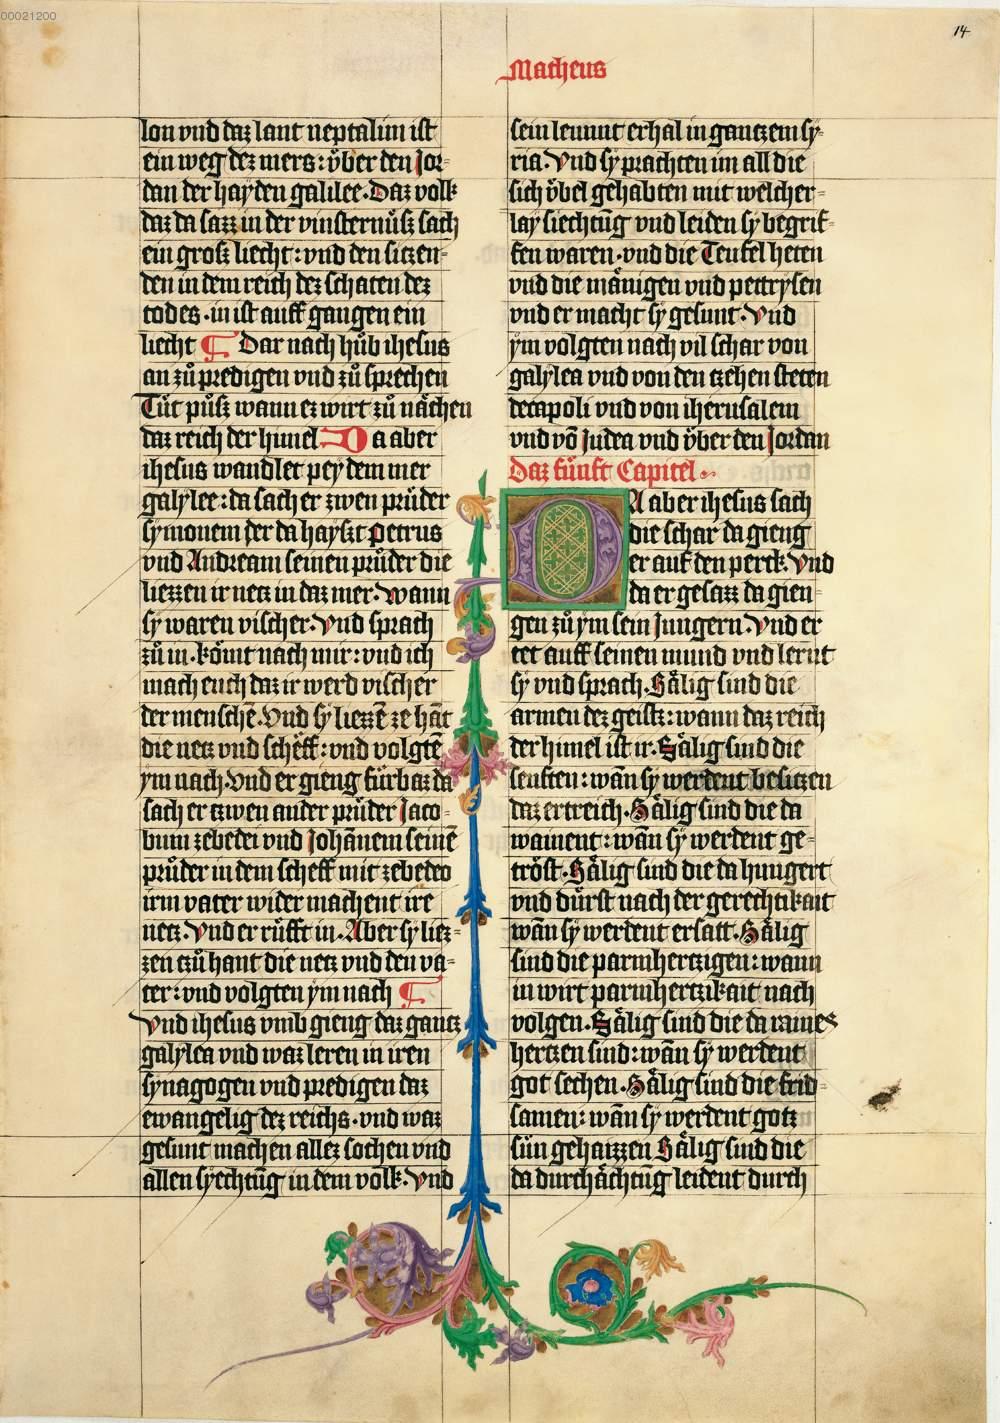 00021200
14
Matheus
lon vnd daz lant neptalim ist
ein weg dez mers: v̈ber den Jor-
dan der hayden galilee. Daz volk
daz da sazz in der vinsternůſz sach
ein groſz liecht: vnd den siczen-
den in dem reich dez schaten dez
todes. in ist auff gangen ein
liecht ¶ Dar nach hůb ihesus
an zů predigen vnd zů sprechen
Tůt půſz wann ez wirt zů nächen
daz reich der himel Da aber
ihesus wandlet pey dem mer
galylee: da sach er zwen průder
symonem der da hayszt petrus
vnd Andream seinen průder die
liezzen ir netz in daz mer. Wann
sy waren vischer. Vnd sprach
zů in. kömt nach mir: vnd ich
mach euch daz ir werd vischer
der menschē. Vnd sy liezzē ze hāt
die netz vnd schëff: vnd volgtē
ym nach. Vnd er gieng fürbaz da
sach er tzwen ander průder Jaco-
bum zebedei vnd Johānem seinē
průder in dem scheff mit zebedeo
irm vater wider machent ire
netz. Vnd er rüfft in. Aber sy liez-
zen tzů hant die netz vnd den va-
ter: vnd volgten ym nach ¶
Vnd ihesus vmb gieng daz gantz
galylea vnd waz leren in iren
synagogen vnd predigen daz
ewangelig dez reichs. vnd waz
gesunt machen allez sochen vnd
allen syechtūg in dem volk. Vnd
sein leunnt erhal in gantzem sy-
ria. Vnd sy prachten im all die
sich v̈bel gehabten mit welcher-
lay siechtūg vnd leiden sy begrif-
fen waren. vnd die Teufel heten
vnd die mänigen vnd pettrysen
vnd er macht sy gesunt. Vnd
ym volgten nach vil schar von
galylea vnd von den tzehen steten
decapoli vnd von iherusalem
vnd vō Judea vnd v̈ber den Jordan
Daz fünft Capitel
DA aber ihesus sach
die schar da gieng
er auf den perck. Vnd
da er gesazz da gien-
gen zů ym sein Jungern. Vnd er
tet auff seinen mund vnd lernt
sy vnd sprach. Sälig sind die
armen dez geistz: wann daz reich
der himel ist ir. Sälig sind die
senften: wān sy werdent besitzen
daz ertreich. Sälig sind die da
wainent: wān sy werdent ge-
tröst. Sälig sind die da hungert
vnd dürst nach der gerechtikait
wān sy werdent ersatt. Sälig
sind die parmhertzigen: wann
in wirt parmhertzikait nach
volgen. Sälig sind die da raines
hertzen sind: wān sy werdent
got sechen. Sälig sind die frid-
samen: wān sy werdent gotz
sün gehaizzen Sälig sind die
da durchächtūg leident durch